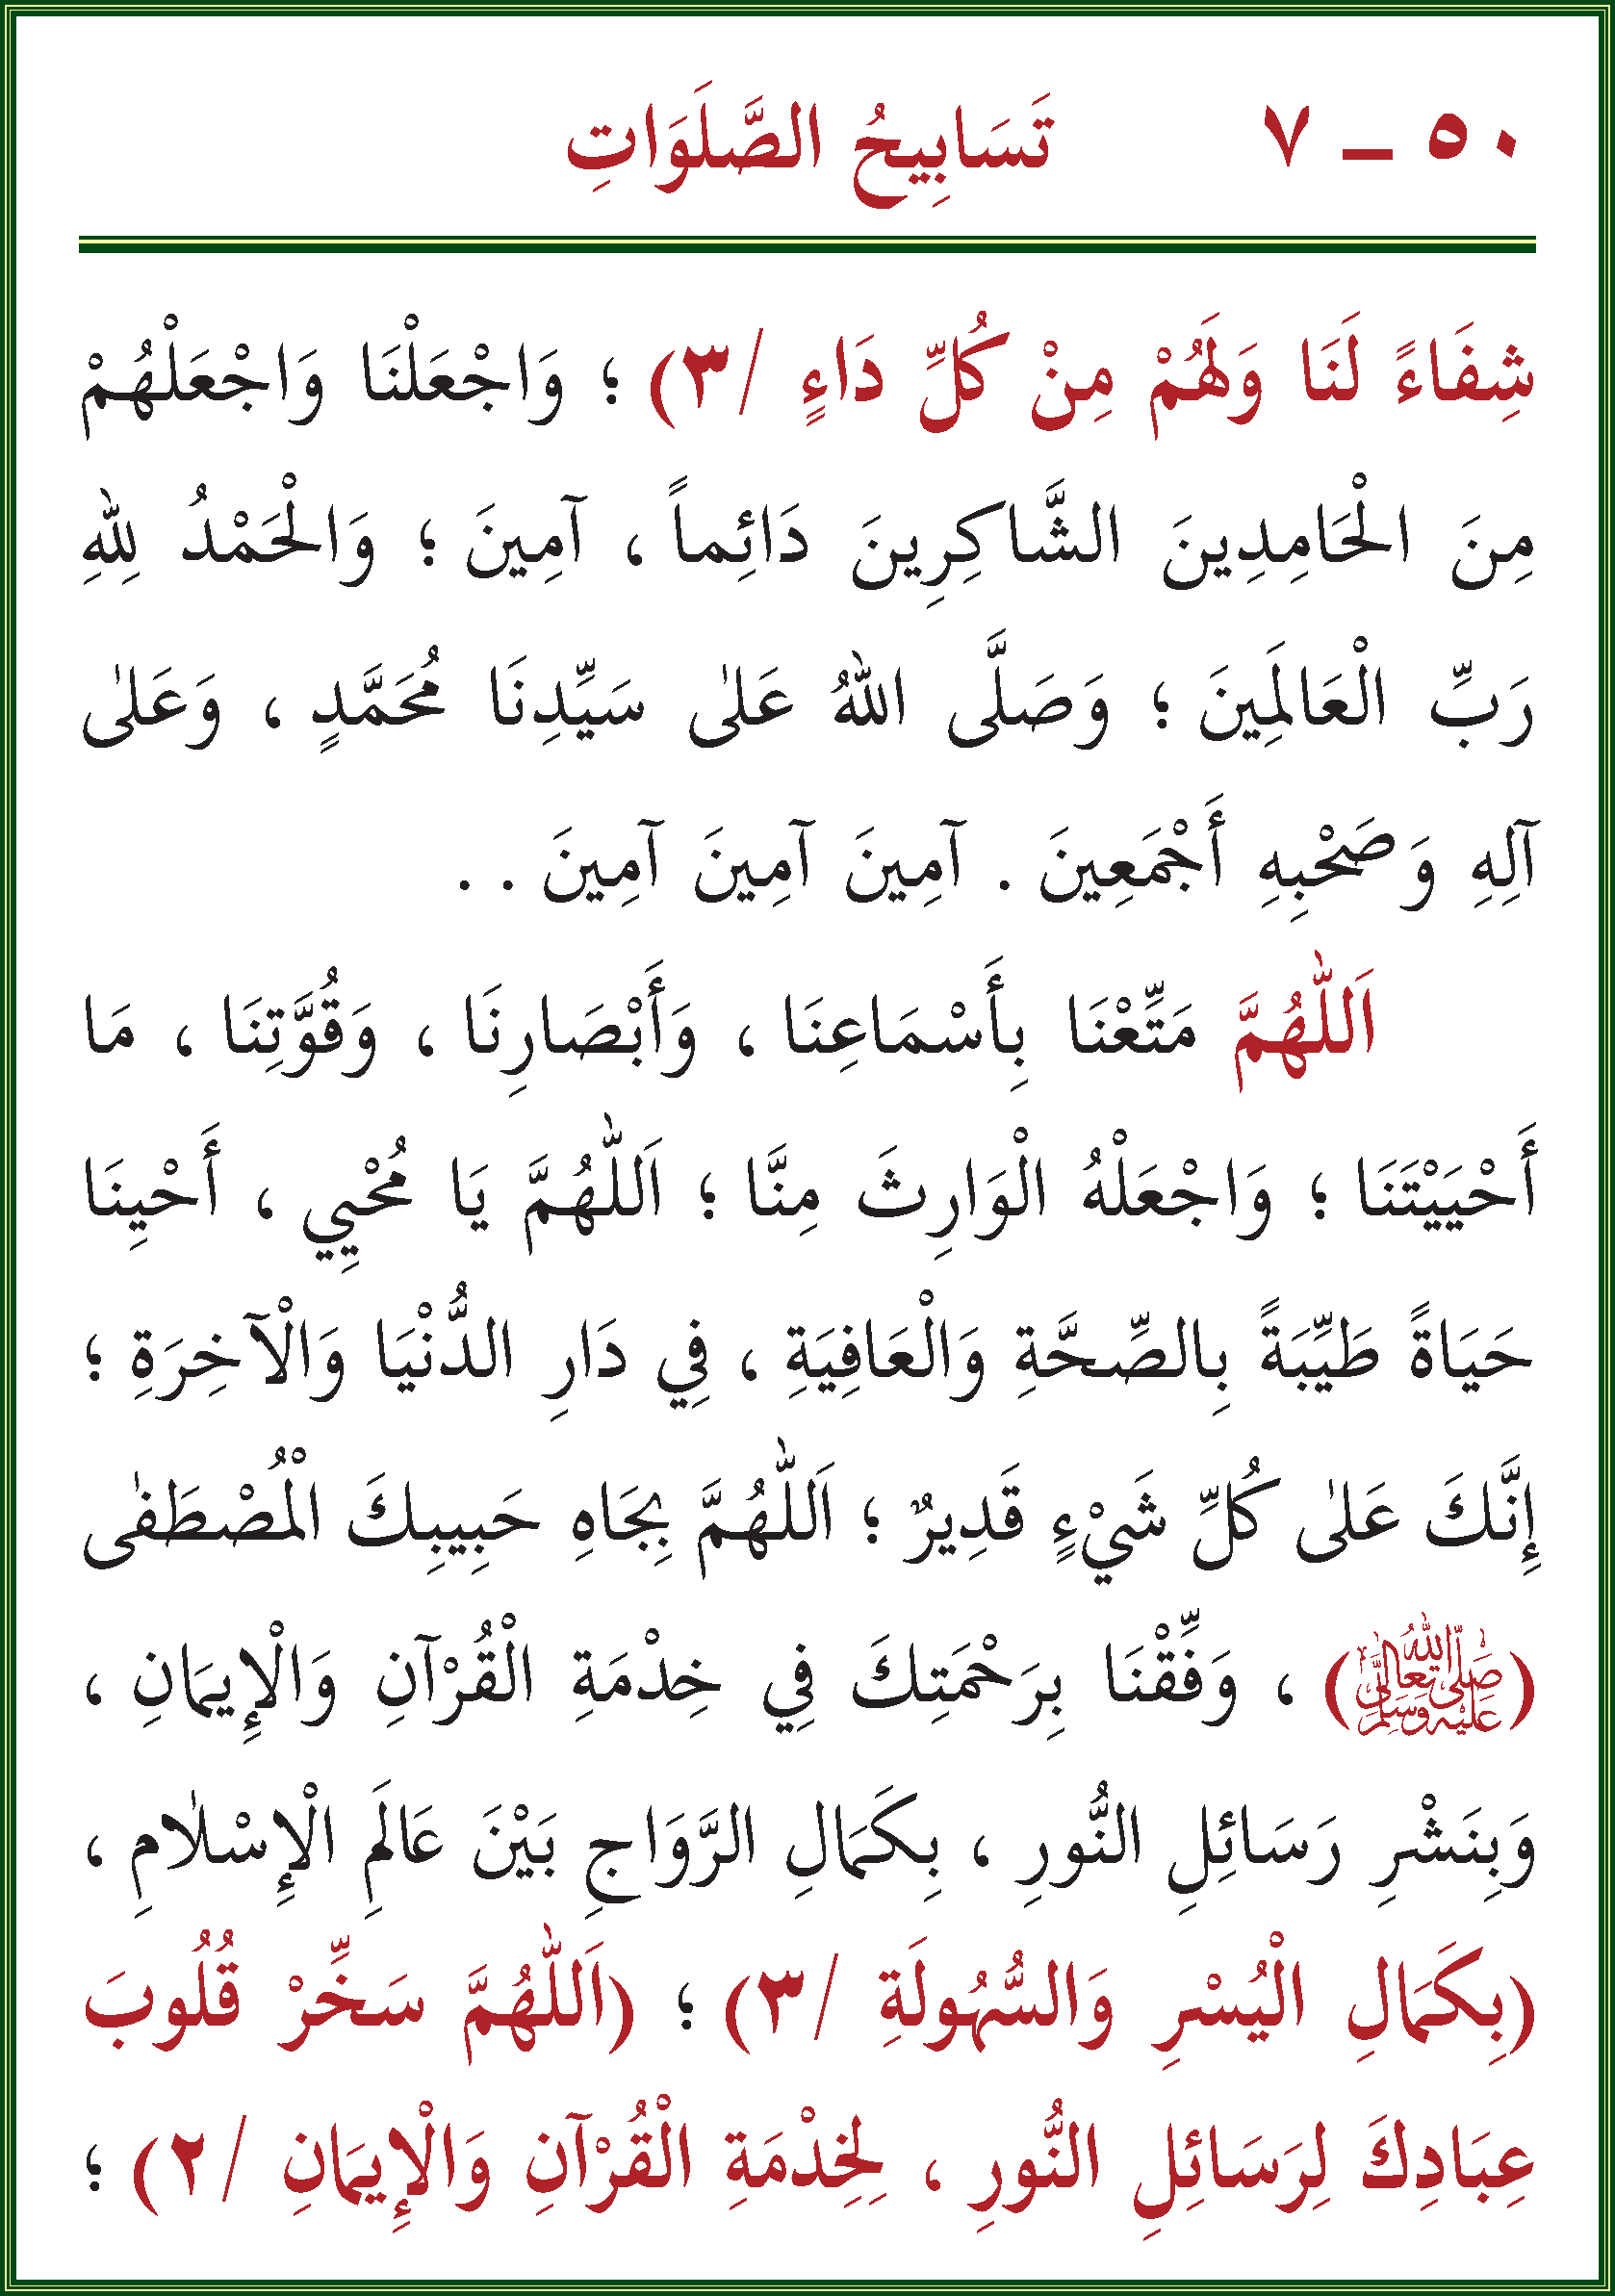 ٥٠ ـ ٧ تَسَابِيحُ الصَّلَوَاتِ
شِفَاءً لَنَا وَلَهُمْ مِنْ كُلِّ دَاءٍ /٣) ؛ وَاجْعَلْنَا وَاجْعَلْهُمْ
مِنَ الْحَامِدِينَ الشَّاكِرِينَ دَائِماً ، آمِينَ ؛ وَالْحَمْدُ لِلهِ
رَبِّ الْعَالَمِينَ ؛ وَصَلَّى اللهُ عَلٰى سَيِّدِنَا مُحَمَّدٍ ، وَعَلٰى
آلِهِ وَصَحْبِهِ أَجْمَعِينَ . آمِينَ آمِينَ آمِينَ . .
اَللّٰهُمَّ مَتِّعْنَا بِأَسْمَاعِنَا ، وَأَبْصَارِنَا ، وَقُوَّتِنَا ، مَا
أَحْيَيْتَنَا ؛ وَاجْعَلْهُ الْوَارِثَ مِنَّا ؛ اَللّٰهُمَّ يَا مُحْيِي ، أَحْيِنَا
حَيَاةً طَيِّبَةً بِالصِّحَّةِ وَالْعَافِيَةِ ، فِي دَارِ الدُّنْيَا وَالْآخِرَةِ ؛
إِنَّكَ عَلٰى كُلِّ شَيْءٍ قَدِيرٌ ؛ اَللّٰهُمَّ بِجَاهِ حَبِيبِكَ الْمُصْطَفٰى
(صَلَّى اللهُ تَعَالٰى عَلَيْهِ وَسَلَّمَ) ، وَفِّقْنَا بِرَحْمَتِكَ فِي خِدْمَةِ الْقُرْآنِ وَالْإِيمَانِ ،
وَبِنَشْرِ رَسَائِلِ النُّورِ ، بِكَمَالِ الرَّوَاجِ بَيْنَ عَالَمِ الْإِسْلٰامِ ،
(بِكَمَالِ الْيُسْرِ وَالسُّهُولَةِ /٣) ؛ (اَللّٰهُمَّ سَخِّرْ قُلُوبَ
عِبَادِكَ لِرَسَائِلِ النُّورِ ، لِخِدْمَةِ الْقُرْآنِ وَالْإِيمَانِ /٢) ؛